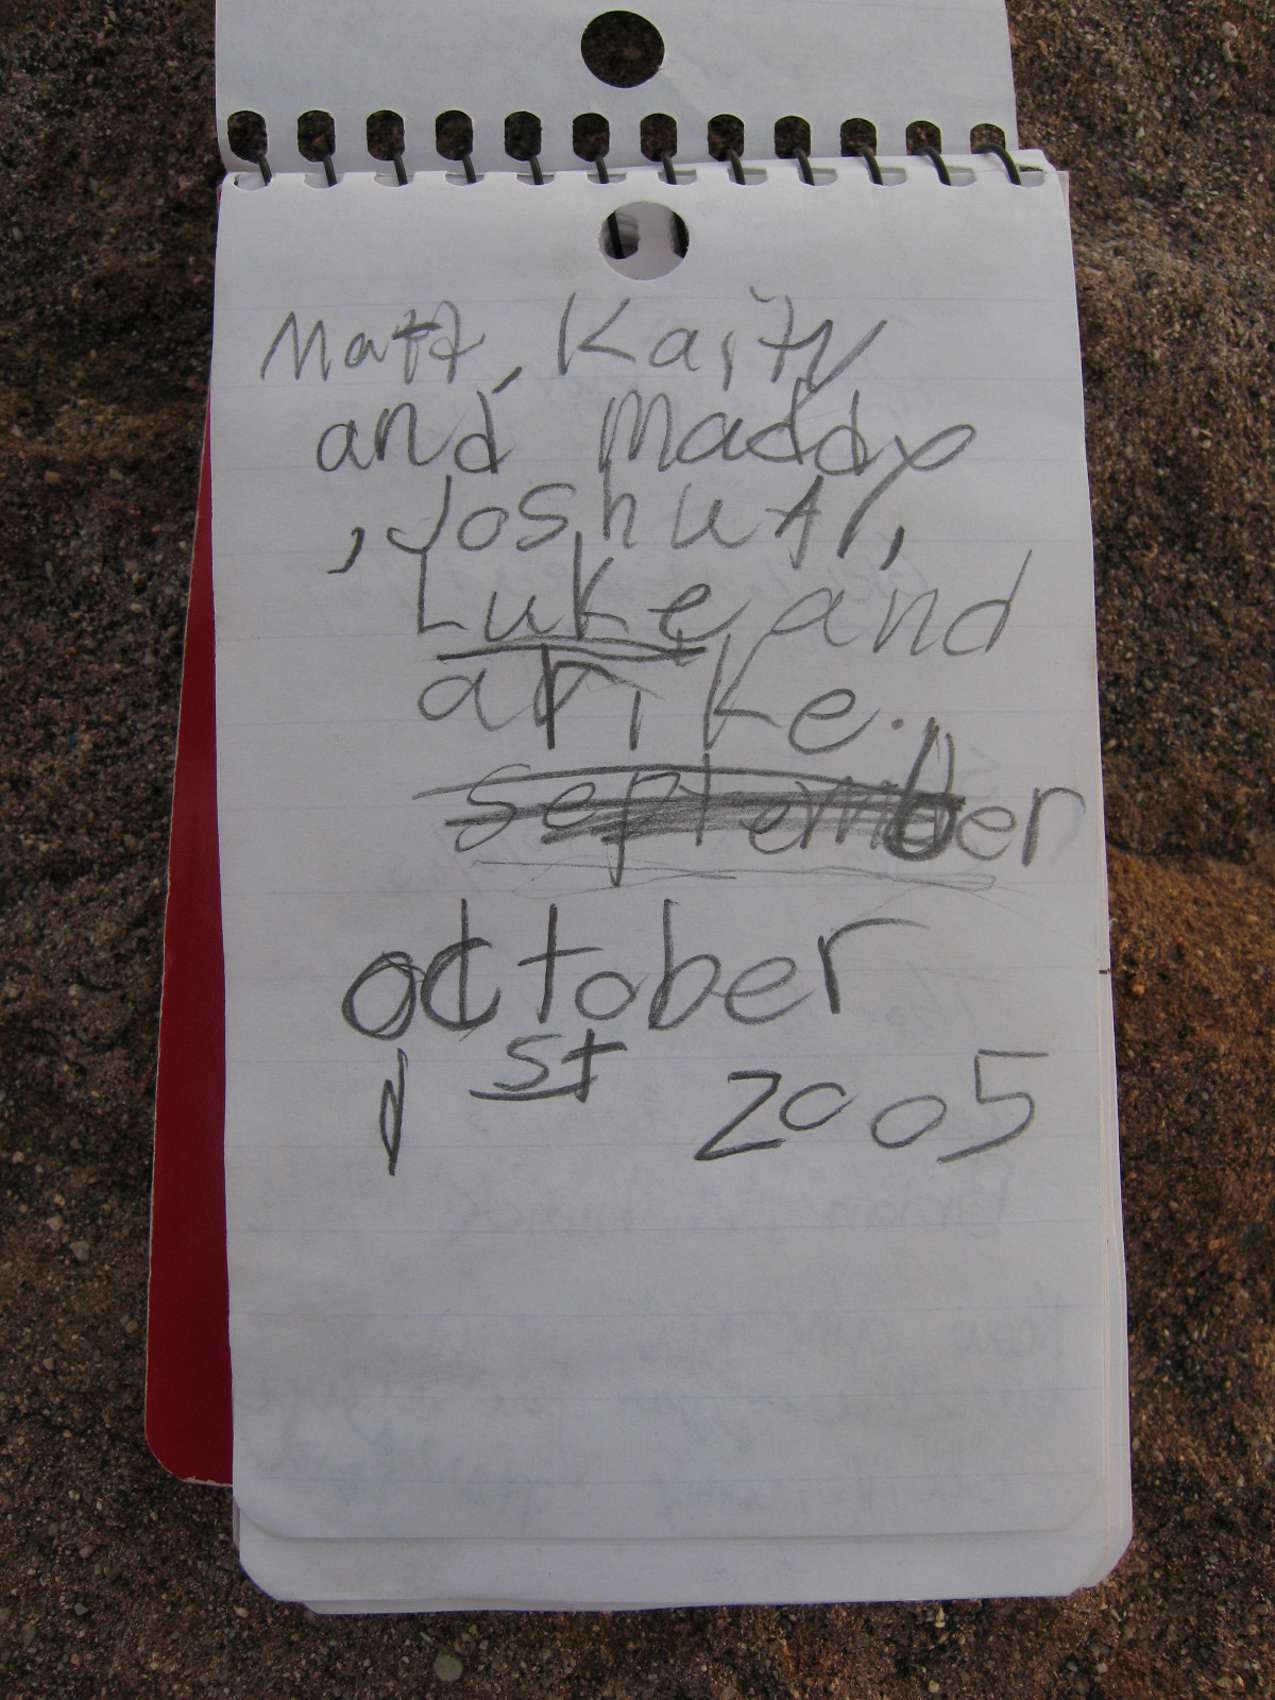 Matt, Kaity
and Maddy
, JoshuA,
Luke and
arike.
september
october
1 st 2005